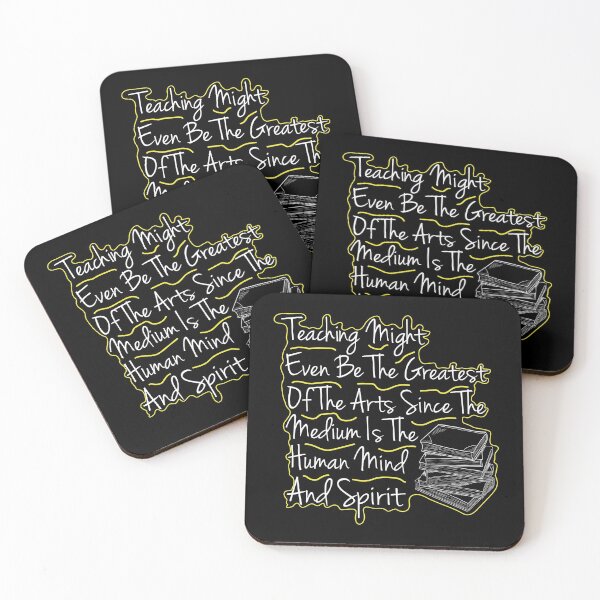 Teaching Might
Even Be The Greatest
Of The Arts Since The
Teaching Might
Even Be The Greatest
Of The Arts Since The
Medium Is The
Human Mind
Teaching Might
Even Be The Greatest
Of The Arts Since The
Medium Is The
Human Mind
And Spirit
Teaching Might
Even Be The Greatest
Of The Arts Since The
Medium Is The
Human Mind
And Spirit